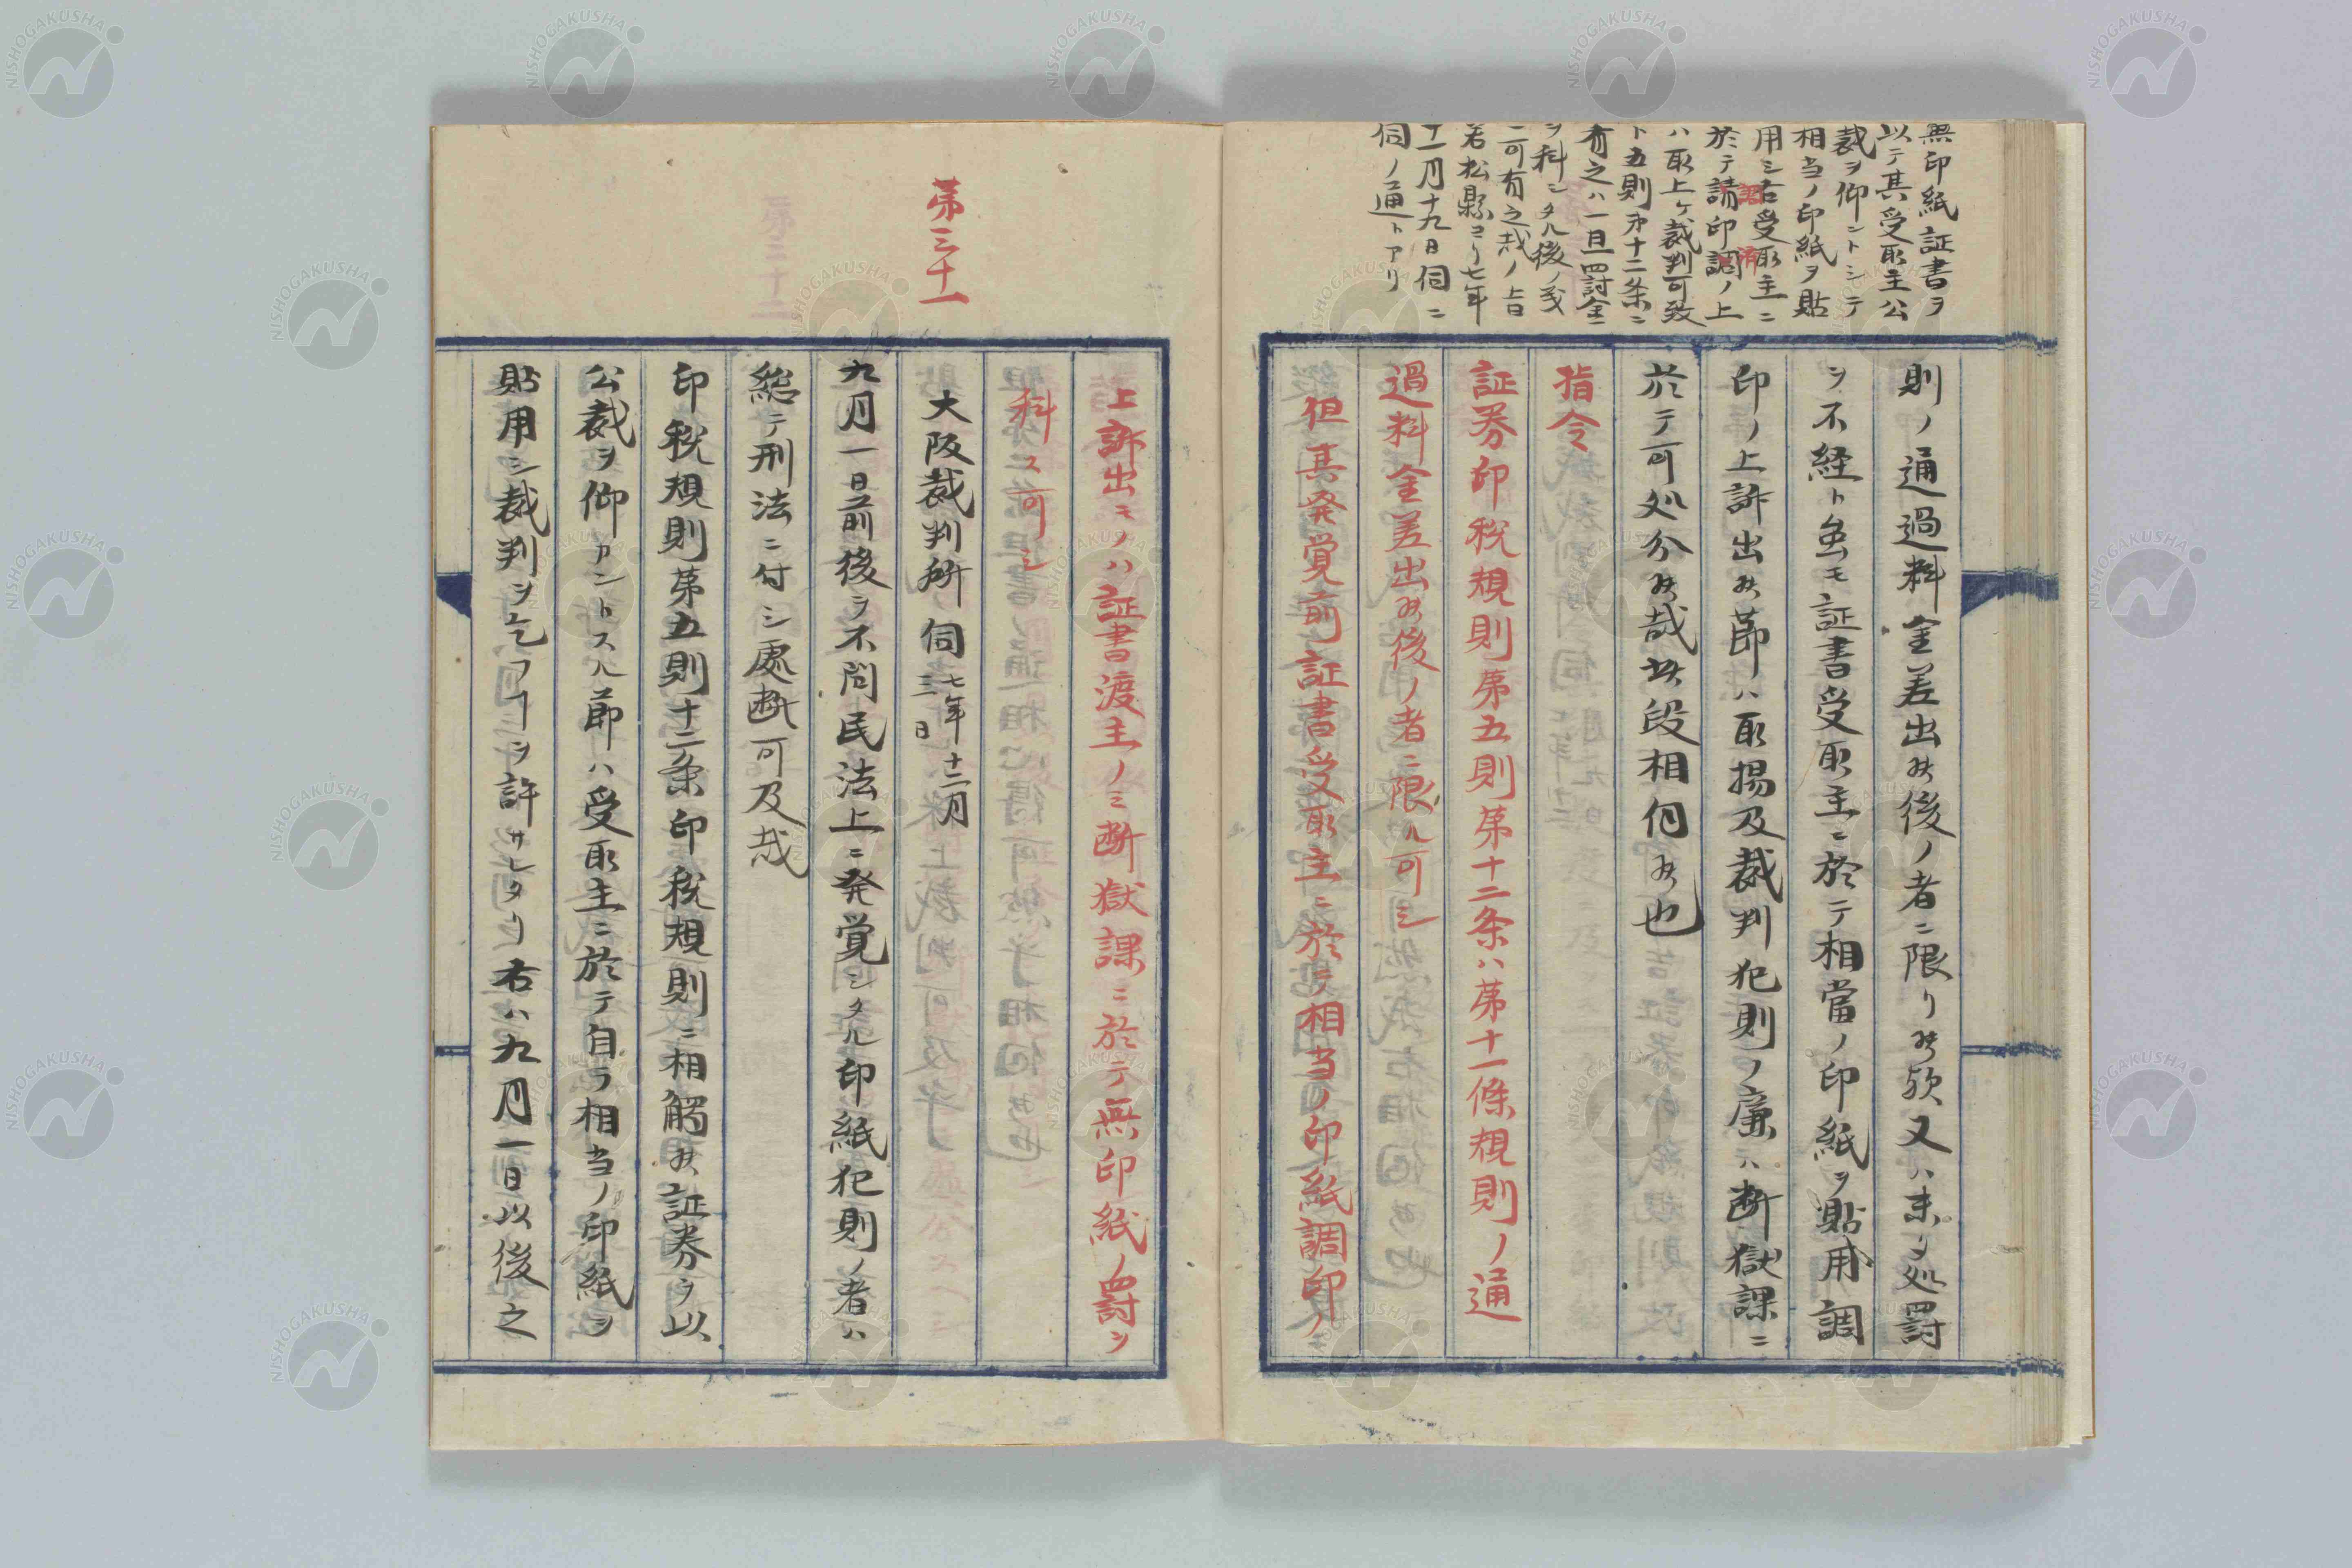 無印紙証書ヲ
以テ其受取主公
裁ヲ仰ントシテ
相当ノ印紙ヲ貼
用シ右受取主ニ
於テ請印調ノ上
ハ取上ケ裁判可致
ト五則第十二条ニ
有之ハ一旦罰金
ヲ科シタル後ノ義
ニ可有之哉ノ旨
若松縣ヨリ七年
十一月十九日伺ニ
伺ノ通トアリ
則ノ通過料金差出候後ノ者ニ限リ候歟又ハ未タ処罰
ヲ不経ト虽モ証書受取主ニ於テ相當ノ印紙ヲ貼用調
印ノ上訴出候節ハ取揚及裁判犯則ノ廉ハ断獄課ニ
於テ可処分候哉此段相伺候也
指令
証券印税規則第五則第十二条ハ第十一條規則ノ通
過料金差出候後ノ者ニ限ル可シ
但其発覚前証書受取主ニ於テ相当ノ印紙調印ノ
上訴出モノハ証書渡主ノミ断獄課ニ於テ無印紙ノ罰ヲ
科ス可シ
第三十一
大阪裁判所伺七年十二月三日
九月一日前後ヲ不問民法上ニ発覚シタル印紙犯則ノ者ハ
総テ刑法ニ付シ處断可及哉
印税規則第五則十二条印税規則ニ相觸候証券ヲ以
公裁ヲ仰カントスル節ハ受取主ニ於テ自ラ相当ノ印紙ヲ
貼用シ裁判ヲ乞フヿヲ許サレタリ右ハ九月一日以後之
NISHOGAKUSHA